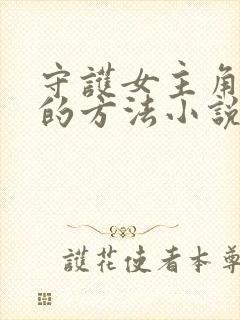 守護女主角
的方法小說
護花使者本尊